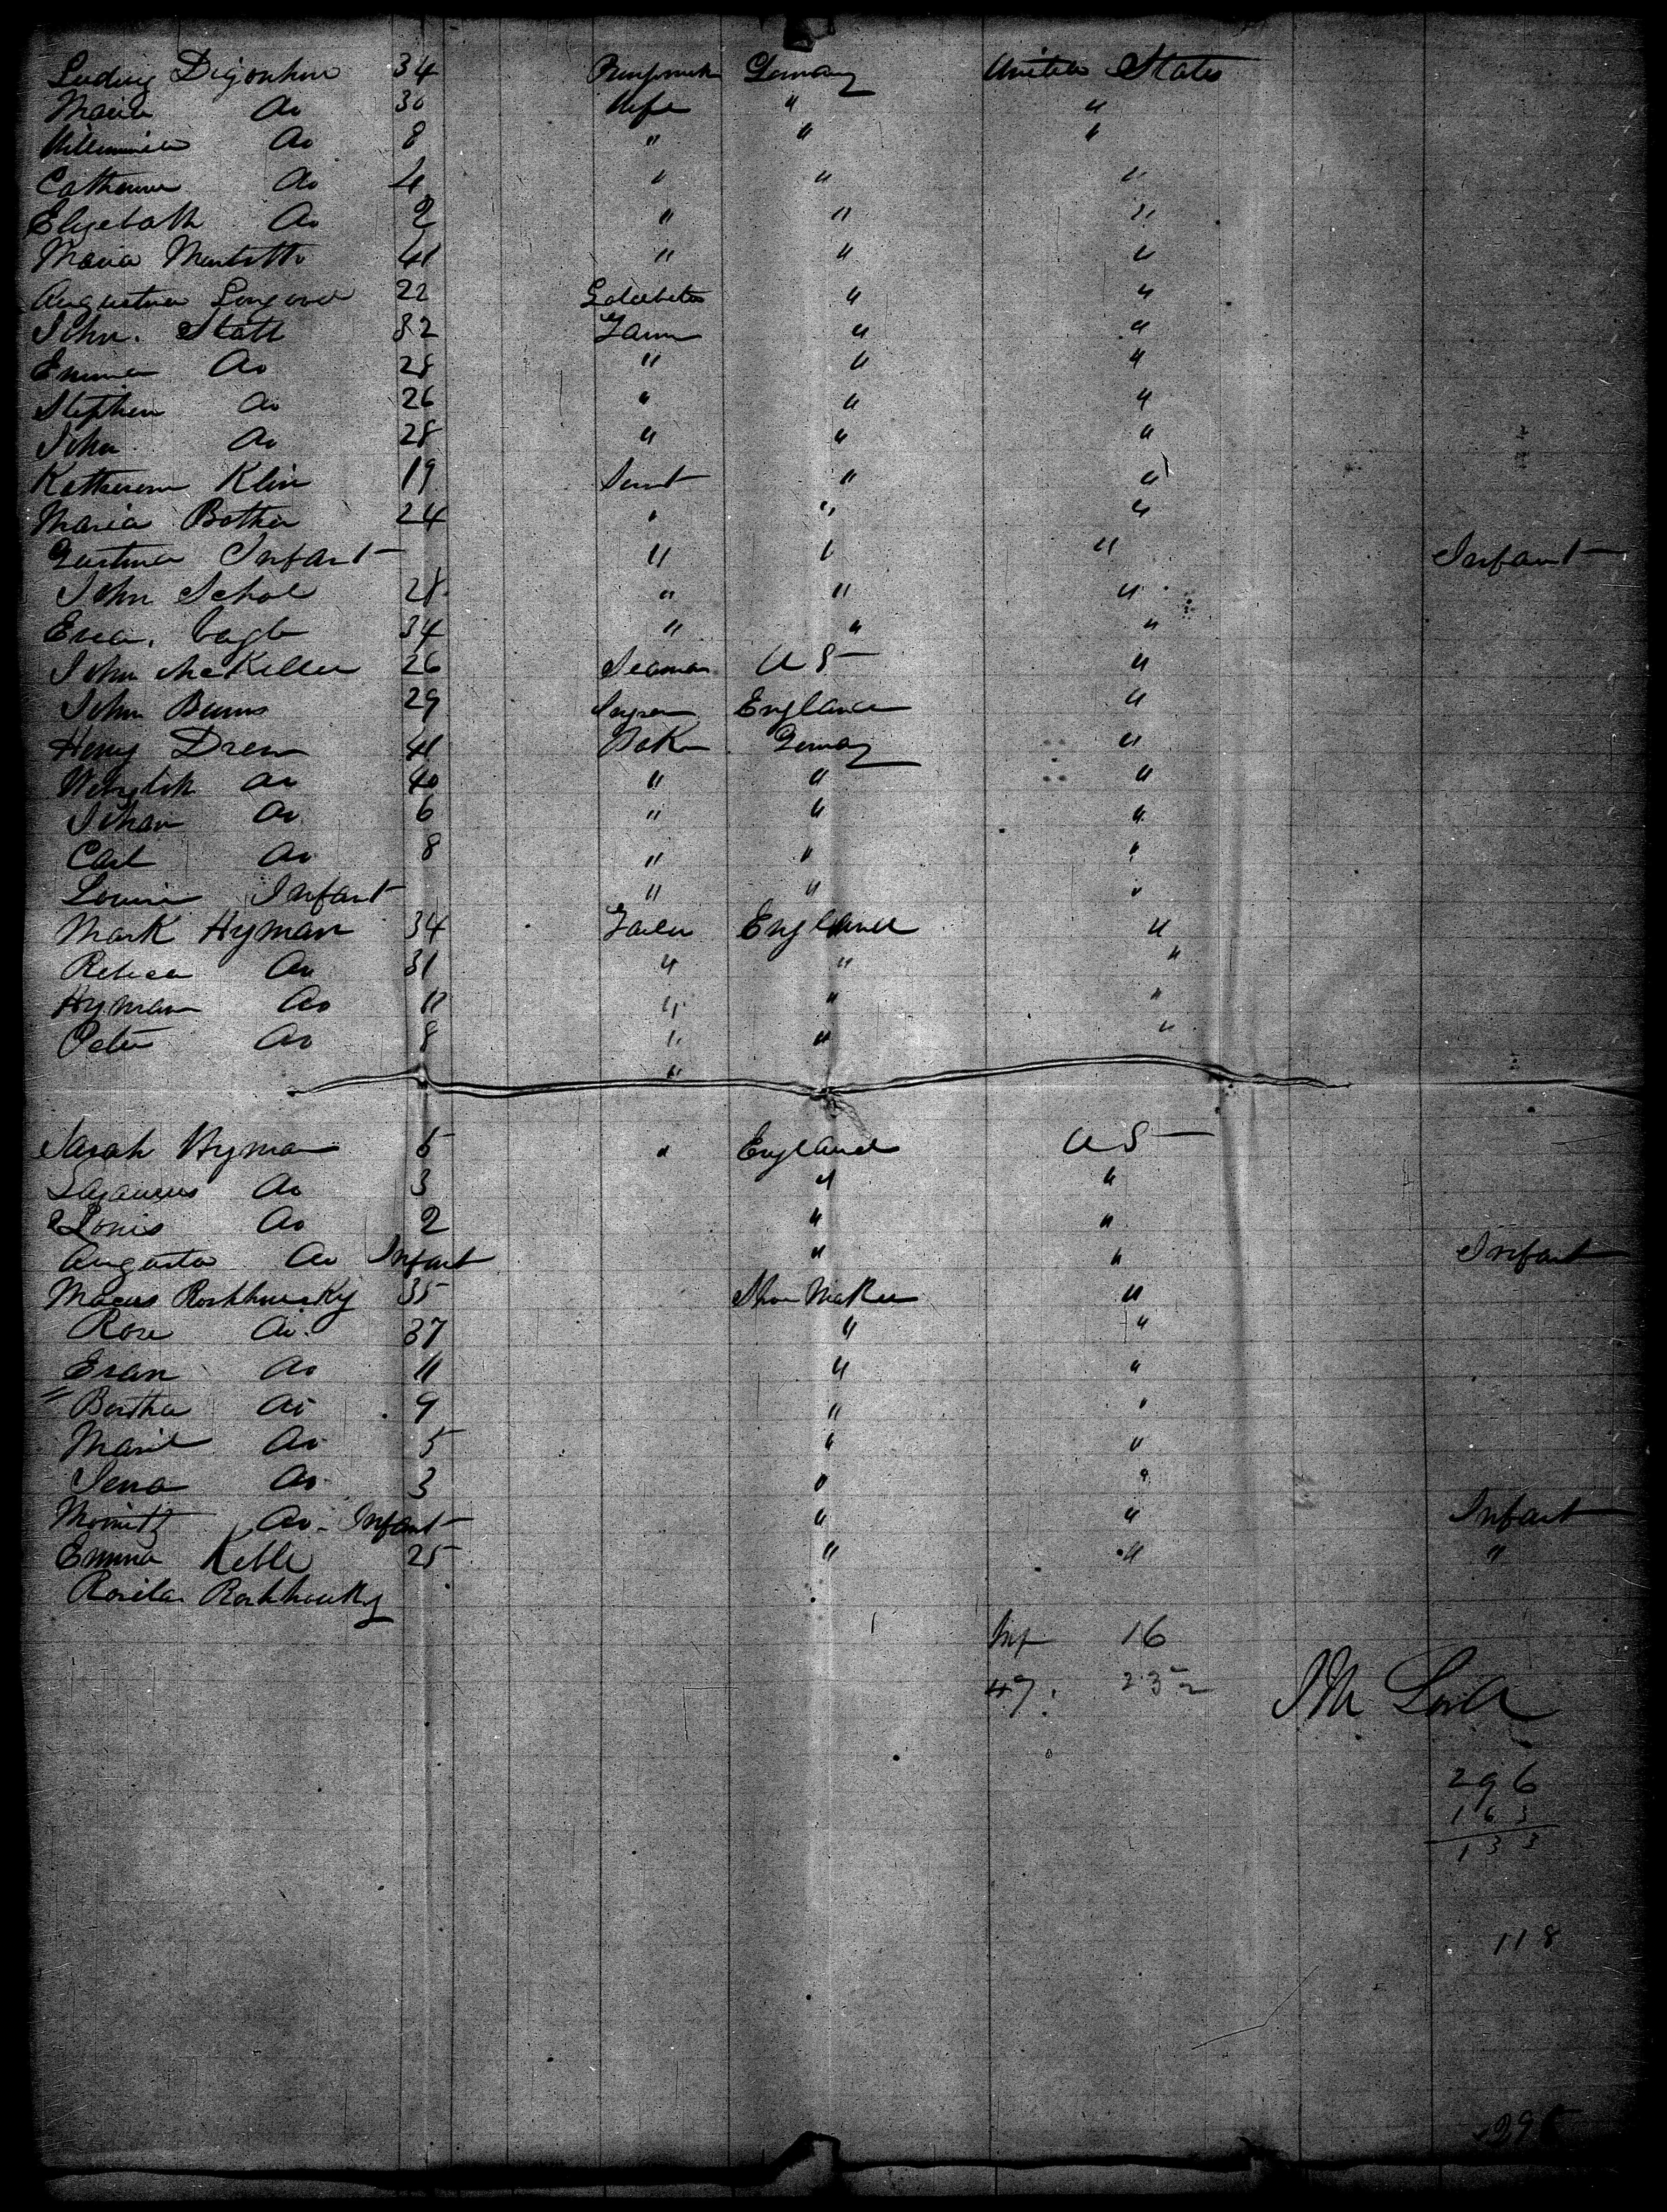 Ludwig Digonhur 34 Germany United States
Maria Do 30 Wife " "
Willemina Do 8 " " "
Catharina Do 4 " " "
Elizebath Do 2 " " "
Maria 41 " " "
Augustina 22 " "
John. Statt 32 Farm " "
Emma Do 28 " " "
Stephen Do 26 " " "
John Do 28 " " "
Katherine Klin 19 Servt " "
Maria Botha 24 " " "
Infant " " " Infant
John Schol 28 " " "
34 " " "
John McKeller 26 Seaman U S "
John Burns 29 England "
Henry Drew 41 Baker Germany "
Do 40 " " "
Johan Do 6 " " "
Carl Do 8 " " "
Louisa Infant " " "
Mark Hyman 34 England "
Rebeca Do 31 " " "
Hyman Do 11 " " "
Peter Do 8 " " "
"
Sarah Hyman 5 " England U S
Lazaurus Do 3 " "
Louis Do 2 " "
Augusta Do Infant " " Infant
Marcus Roskhousky 35 Shoe Maker "
Rose Do. 37 " "
Esan Do 11 " "
Bertha Do 9 " "
Do 5 " "
Jena Do 3 " "
Morritz Do - Infant " " Infant
Emma Keble 25 " " "
Rosila Roskhousky
Inf 16
47. 232
296
163
133
118
296